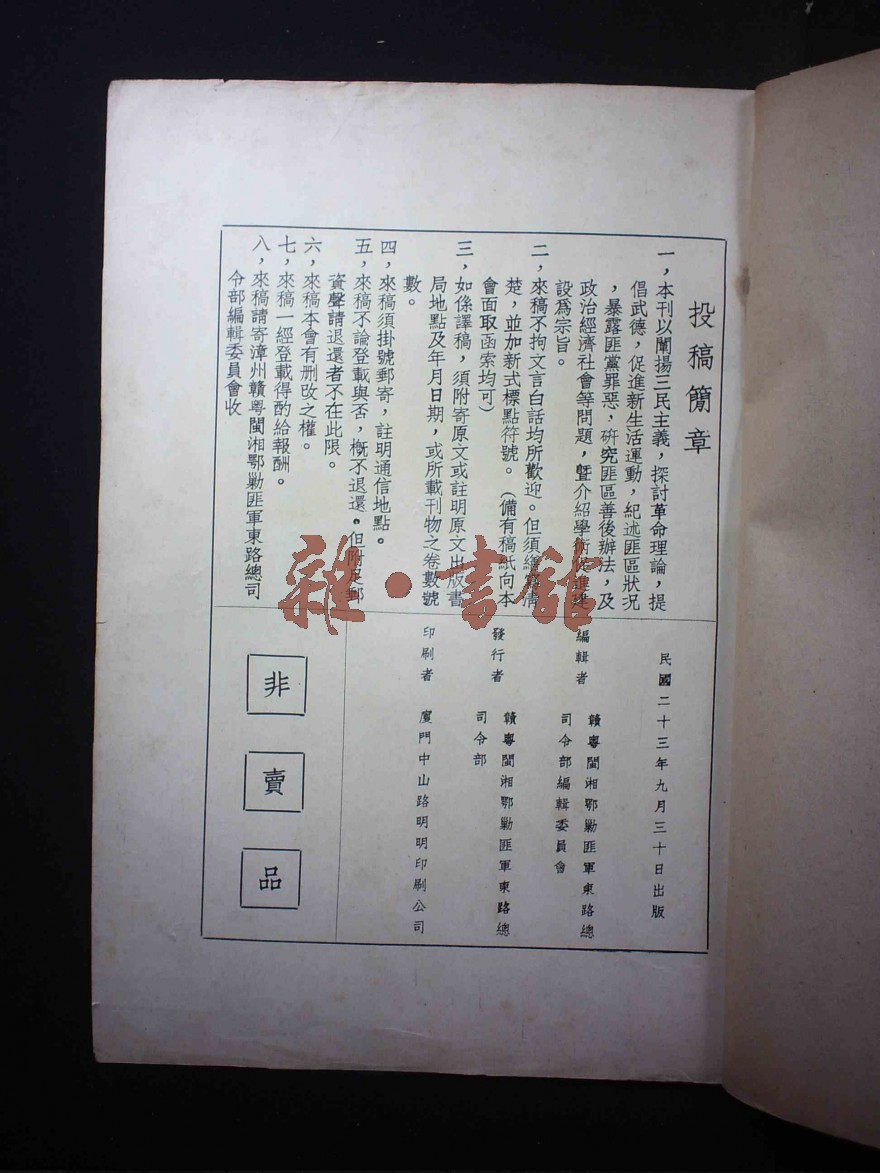 投稿簡章
一，本刊以闡揚三民主義，探討革命理論，提
倡武德，促進新生活運動，紀述匪區狀況
，暴露匪黨罪惡，硏究匪區善後辦法，及
政治經濟社會等問題，曁介紹學術促進建
設爲宗旨。
二，來稿不拘文言白話均所歡迎。但須繕寫淸
楚，並加新式標點符號。（備有稿紙向本
會面取函索均可）
三，如係譯稿，須附寄原文或註明原文出版書
局地點及年月日期，或所載刊物之卷數號
數。
四，來稿須掛號郵寄，註明通信地點。
五，來稿不論登載與否，槪不退還。但附足郵
資聲請退還者不在此限。
六，來稿本會有刪改之權。
七，來稿一經登載得酌給報酬。
八，來稿請寄漳州贛粤閩湘鄂勦匪軍東路總司
令部編輯委員會收
民國二十三年九月三十日出版
編輯者
贛粤閩湘鄂勦匪軍東路總
司令部編輯委員會
發行者
贛粤閩湘鄂勦匪軍東路總
司令部
印刷者
廈門中山路明明印刷公司
非
賣
品
雜·書館